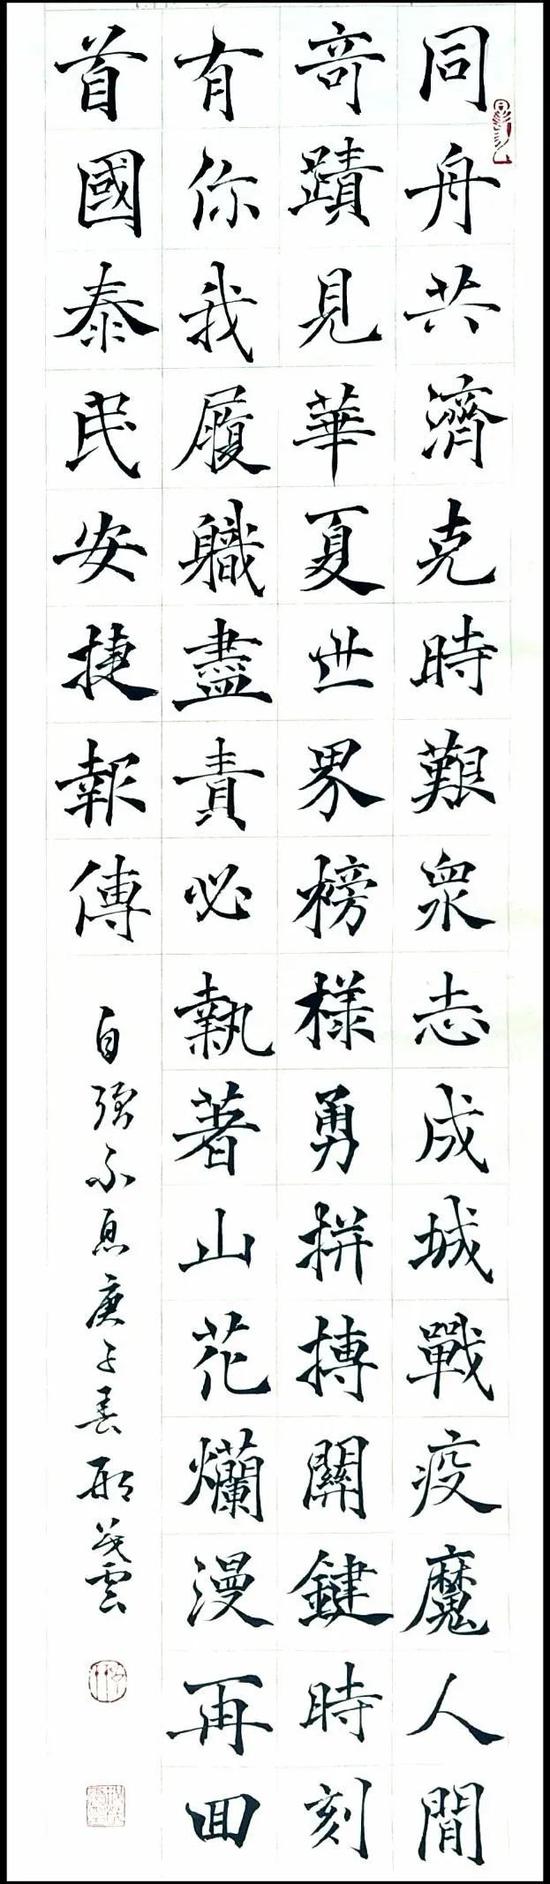 同舟共濟克時艱衆志成城戰疫魔人間
奇蹟見華夏世界榜樣勇拼搏關鍵時刻
有你我履職盡責必執著山花爛漫再回
首國泰民安捷報傳
自強不息庚子春